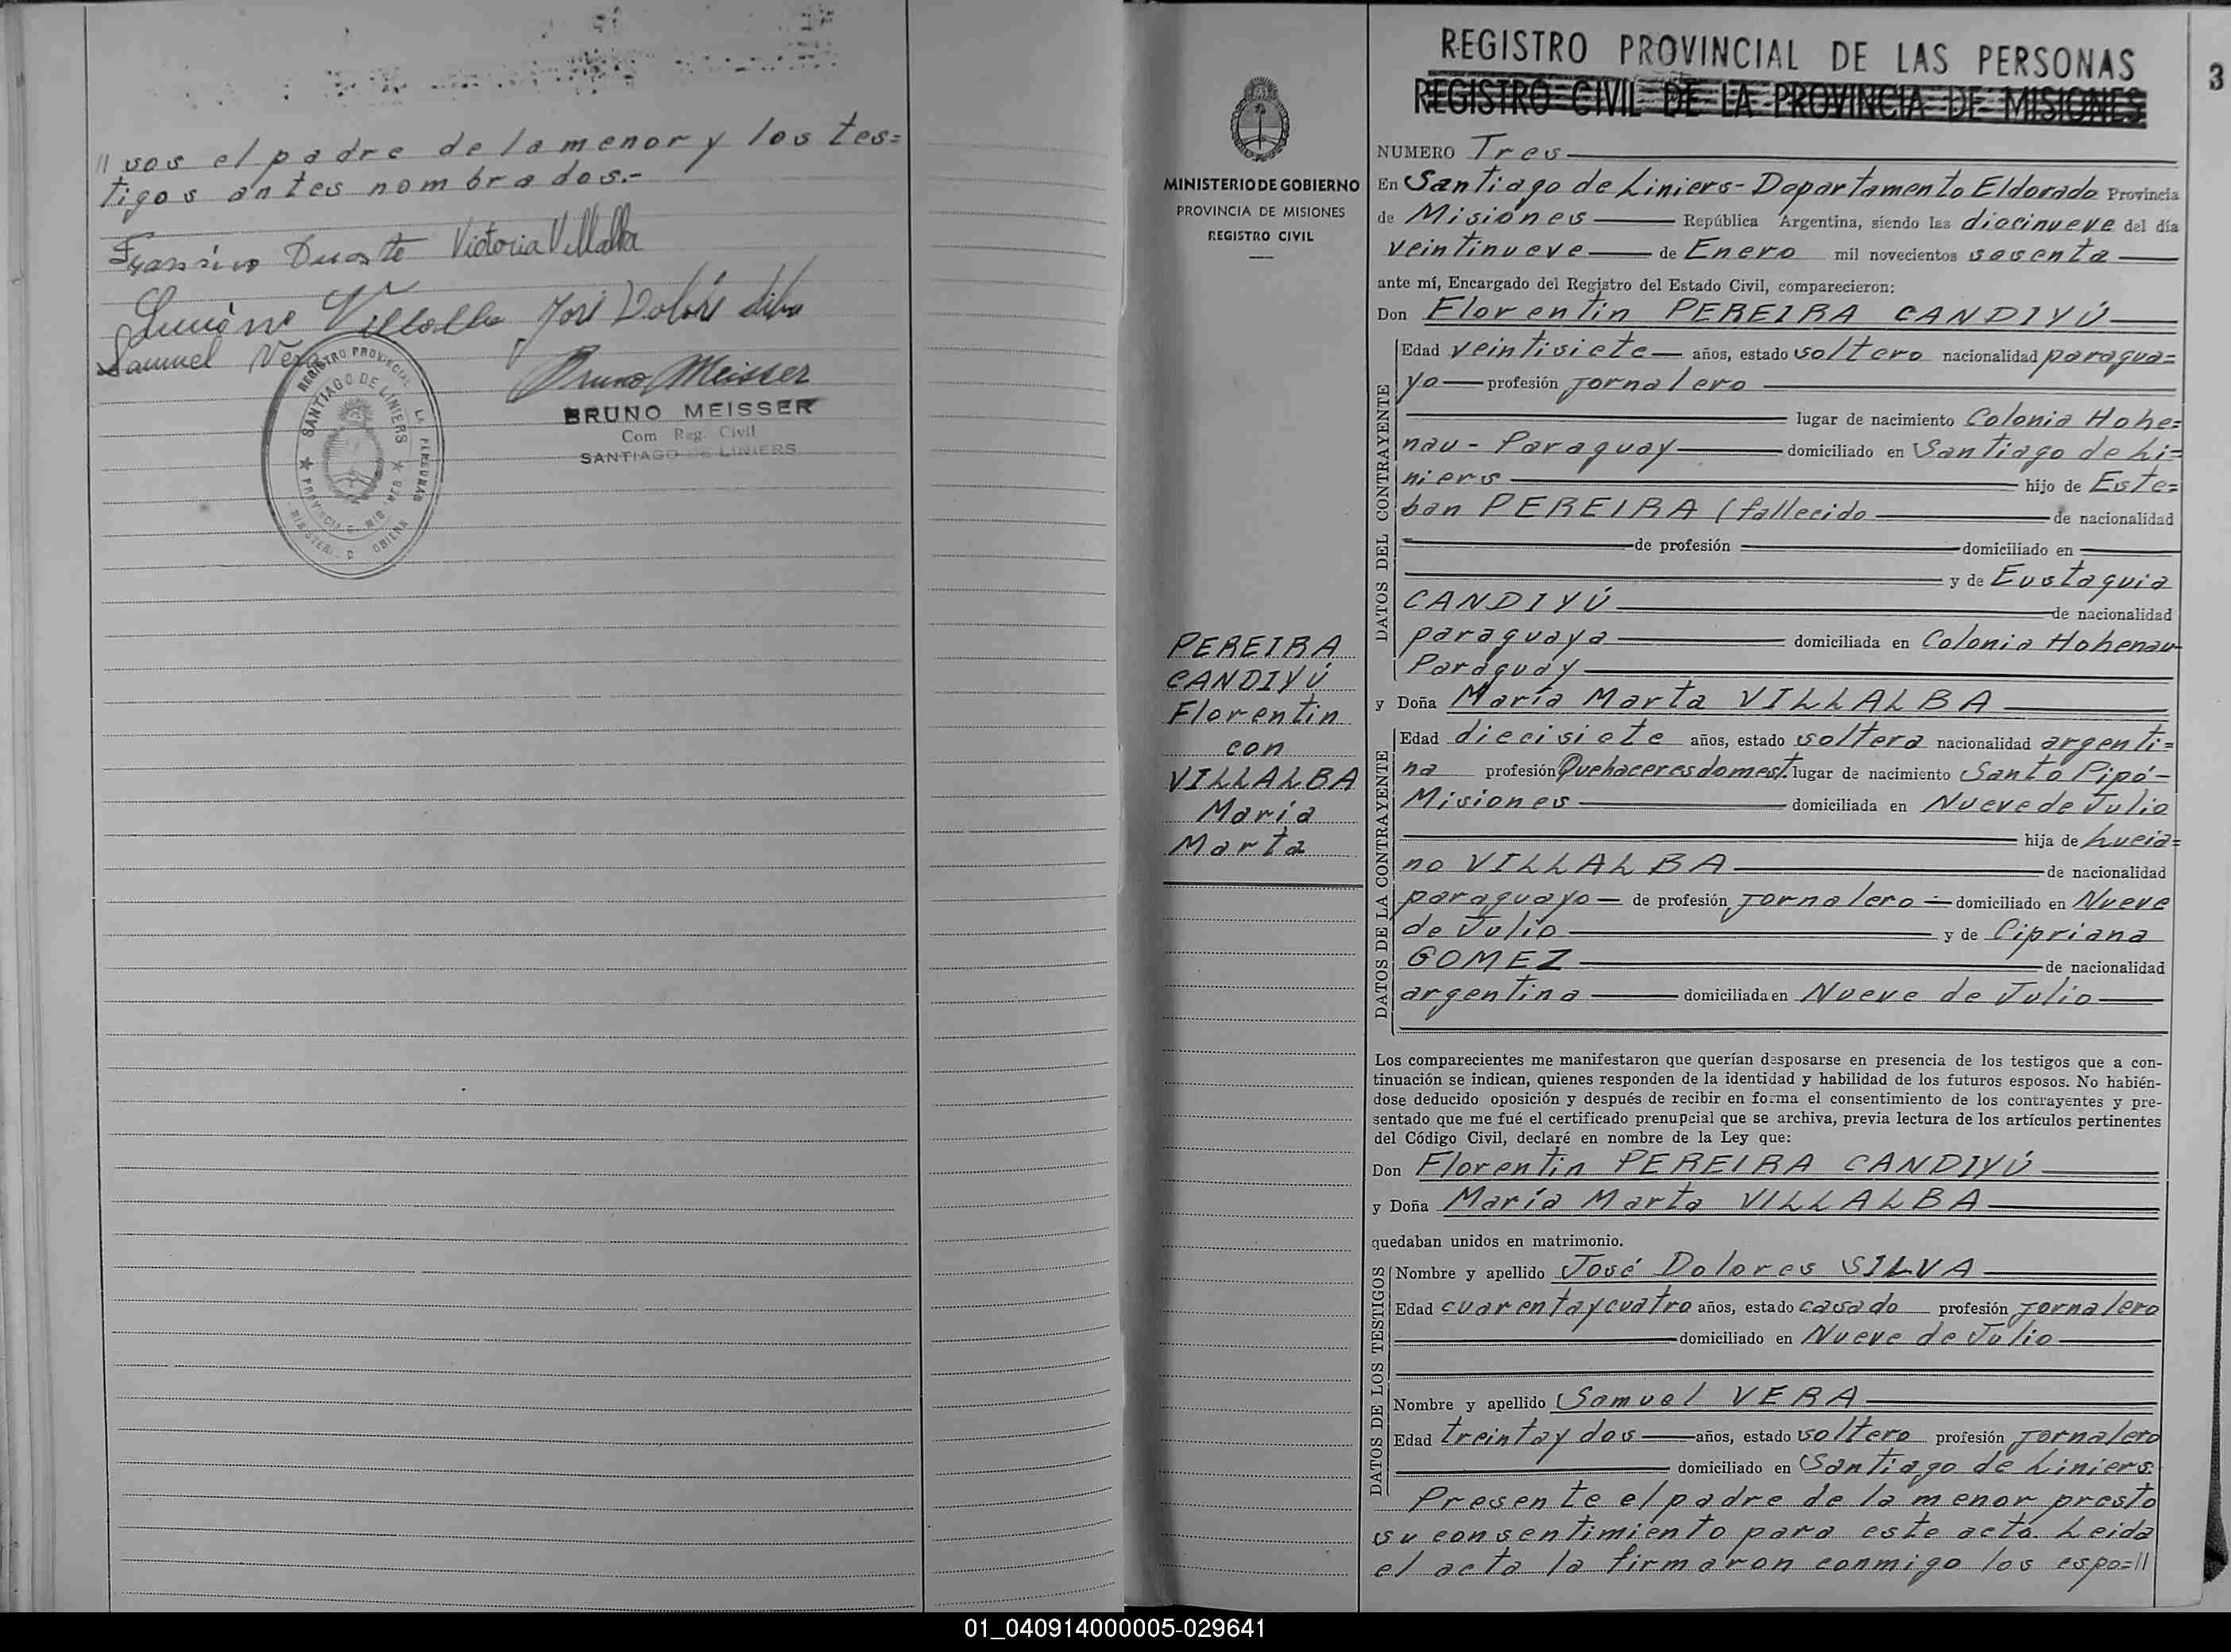 // sos el padre de la menor y los tes=
tigos antes nombrados.-
Duarte Victoria Villalba
Villalba José Dolores Silva
Samuel Vera
Bruno Meisser
BRUNO MEISSER
Com Reg. Civil
SANTIAGO DE LINIERS
REGISTRO PROVINCIAL
SANTIAGO DE LINIERS
REGISTRO PROVINCIAL DE LAS PERSONAS
REGISTRO CIVIL DE LA PROVINCIA DE MISIONES
3
MINISTERIO DE GOBIERNO
PROVINCIA DE MISIONES
REGISTRO CIVIL
PEREIRA
CANDIYÚ
Florentin
con
VILLALBA
María
Marta
NUMERO Tres
En Santiago de Liniers - Departamento Eldorado Provincia
de Misiones República Argentina, siendo las diecinueve del día
veintinueve de Enero mil novecientos sesenta
ante mí, Encargado del Registro del Estado Civil, comparecieron:
Don Florentin PEREIRA CANDIYÚ
DATOS DEL CONTRAYENTE
Edad veintisiete años, estado soltero nacionalidad paragua=
yo profesión jornalero
lugar de nacimiento Colonia Hohe=
nau - Paraguay domiciliado en Santiago de Li=
niers hijo de Este=
ban PEREIRA (fallecido de nacionalidad
de profesión domiciliado en
y de Eustaquia
CANDIYÚ de nacionalidad
paraguaya domiciliada en Colonia Hohenau
Paraguay
y Doña María Marta VILLALBA
DATOS DE LA CONTRAYENTE
Edad diecisiete años, estado soltera nacionalidad argenti=
na profesión Quehaceres domest. lugar de nacimiento Santo Pipó-
Misiones domiciliada en Nueve de Julio
hija de Lucia=
no VILLALBA de nacionalidad
paraguayo de profesión jornalero domiciliado en Nueve
de Julio y de Cipriana
GOMEZ de nacionalidad
argentina domiciliada en Nueve de Julio
Los comparecientes me manifestaron que querían desposarse en presencia de los testigos que a con-
tinuación se indican, quienes responden de la identidad y habilidad de los futuros esposos. No habién-
dose deducido oposición y después de recibir en forma el consentimiento de los contrayentes y pre-
sentado que me fué el certificado prenupcial que se archiva, previa lectura de los artículos pertinentes
del Código Civil, declaré en nombre de la Ley que:
Don Florentin PEREIRA CANDIYÚ
y Doña María Marta VILLALBA
quedaban unidos en matrimonio.
DATOS DE LOS TESTIGOS
Nombre y apellido José Dolores SILVA
Edad cuarenta y cuatro años, estado casado profesión jornalero
domiciliado en Nueve de Julio
Nombre y apellido Samuel VERA
Edad treinta y dos años, estado soltero profesión jornalero
domiciliado en Santiago de Liniers.
Presente el padre de la menor presto
su consentimiento para este acto. Leida
el acta la firmaron conmigo los espo=//
01_040914000005-029641